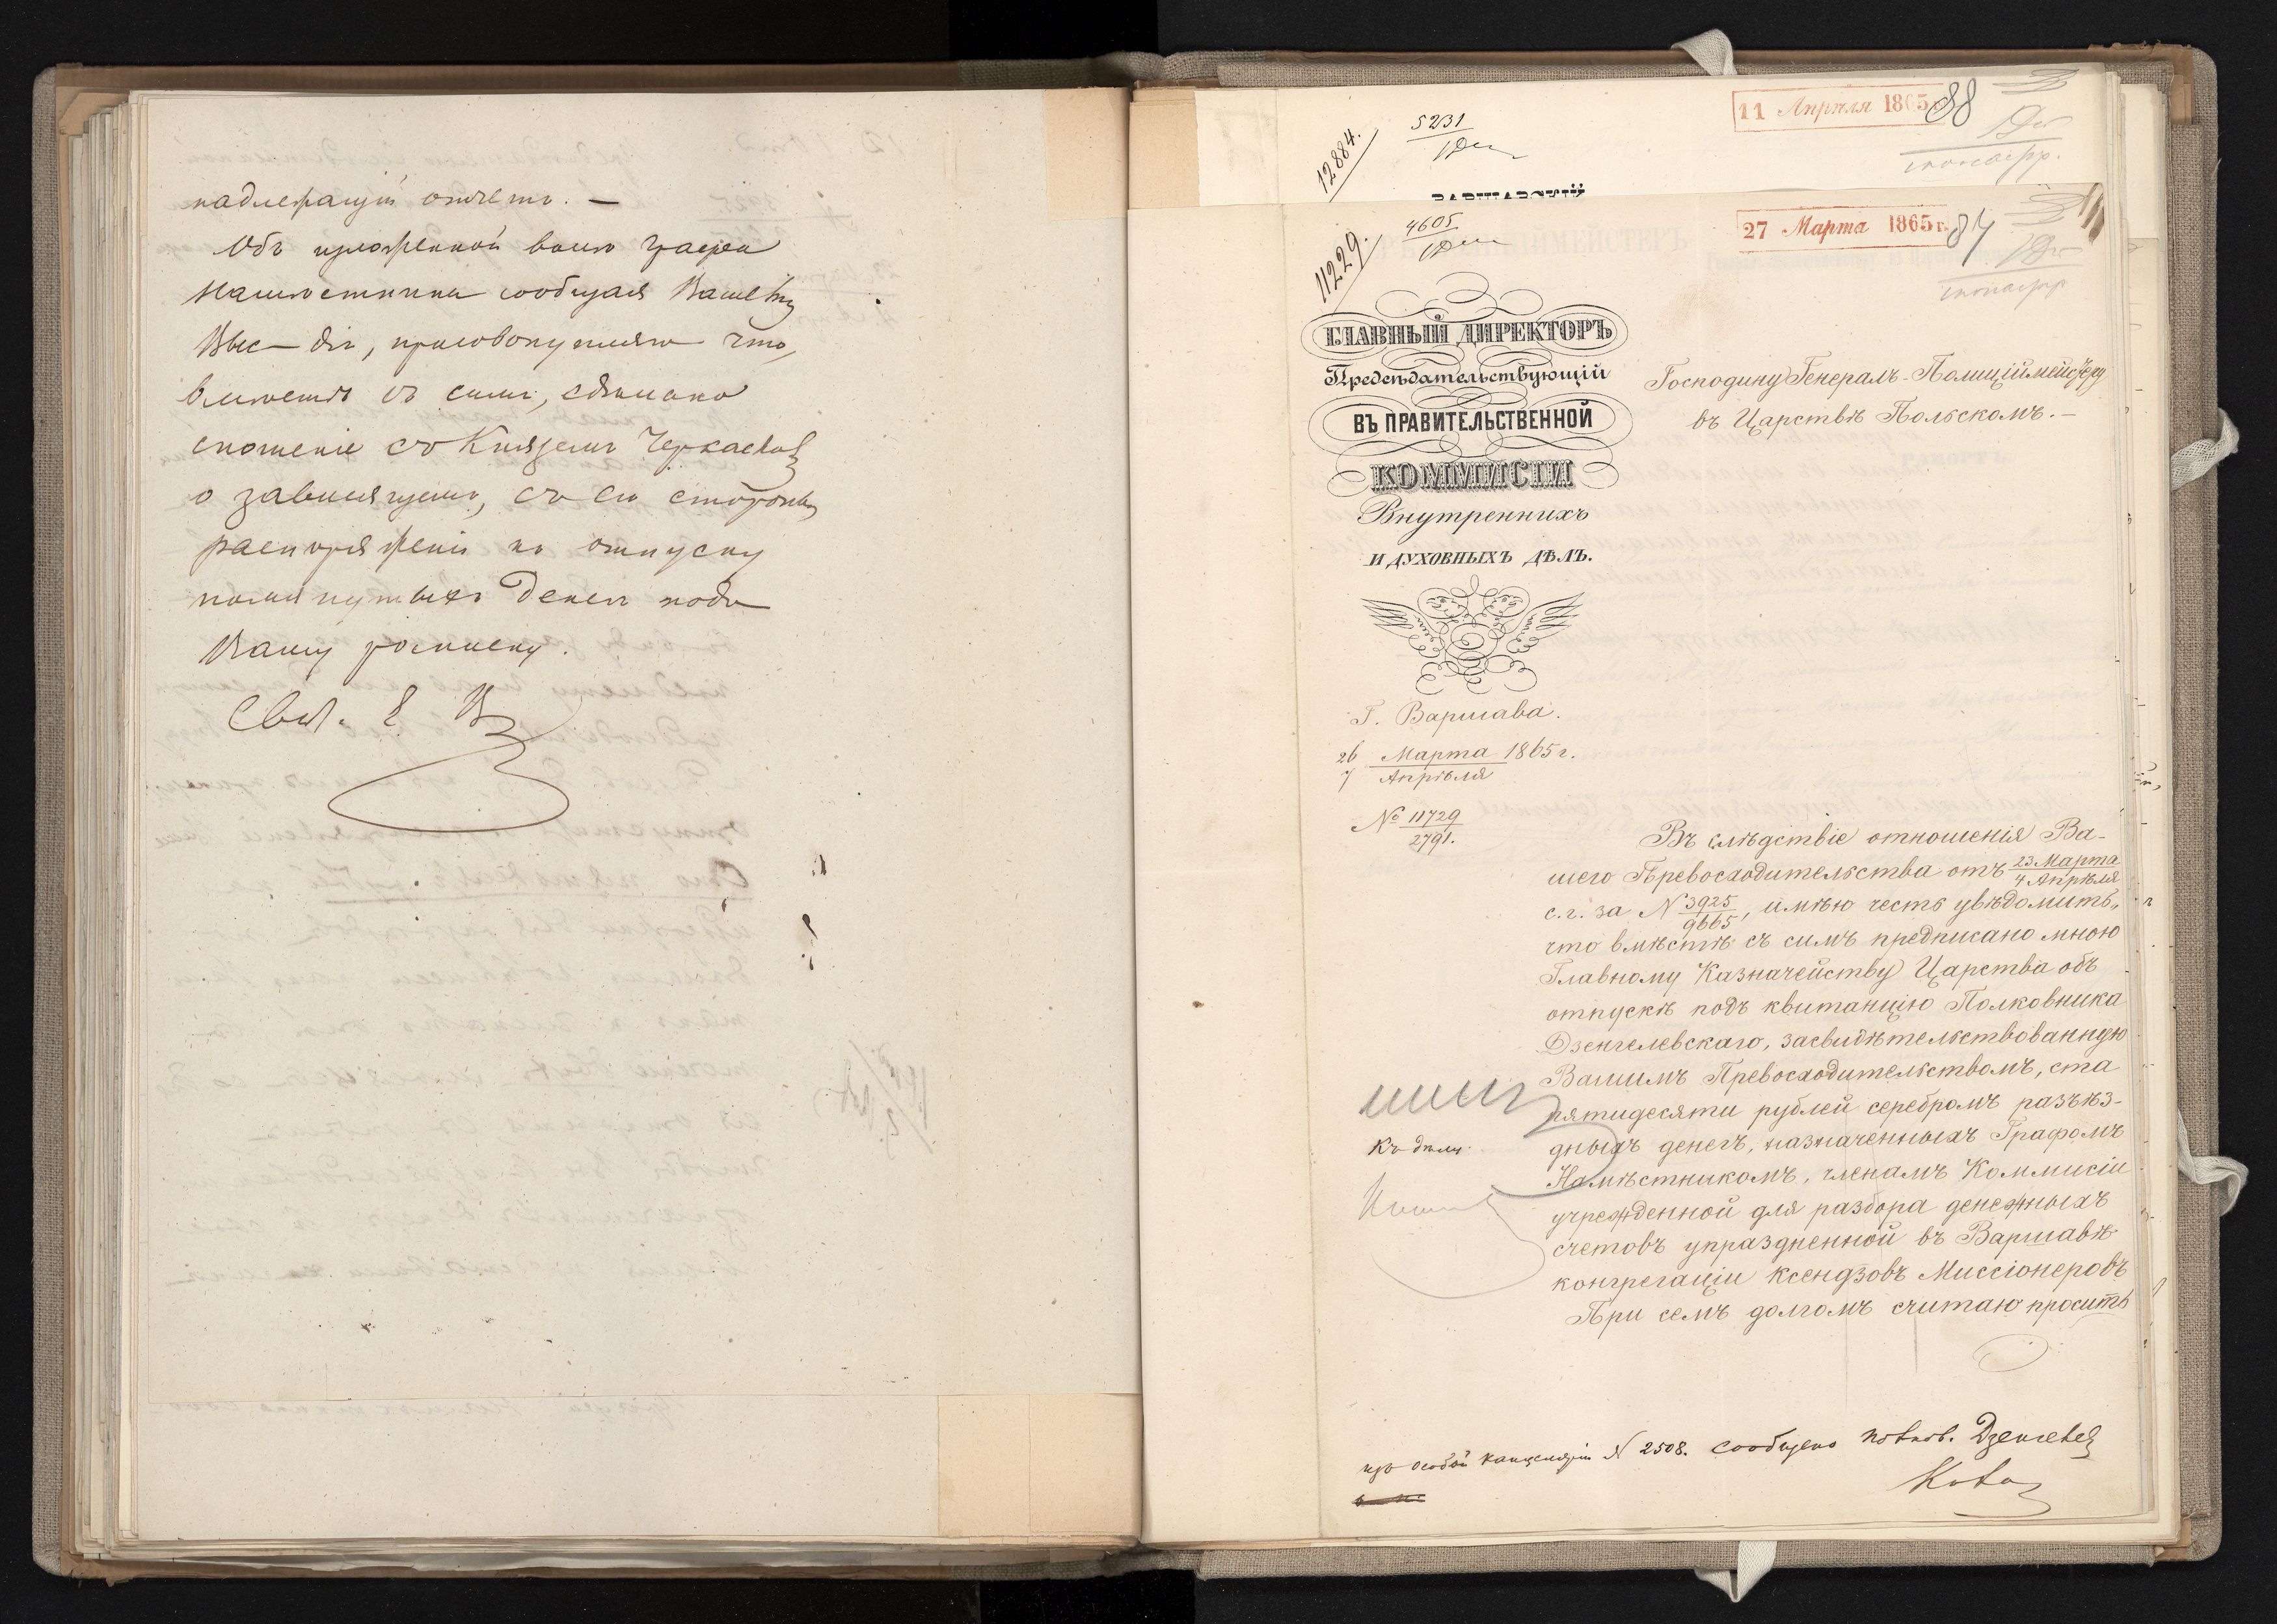 надлежащій отчетъ. —
Объ изложенной волѣ Графа
Намѣстника сообщая Вашему
Выс—дiю, присовокупляю что,
вмѣстѣ съ симъ, сдѣлано
сношеніе съ Княземъ Черкасскимъ
о зависящемъ, съ его стороны,
распоряженіи къ отпуску
помянутыхъ денегъ подъ
Вашу росписку.
11 Апрѣля 1865
88
12884.
5231
ВАРШАВСКІЙ
27 Марта 1865 г.
84
11229.
4605
ГЛАВНЫЙ ДИРЕКТОРЪ
Предсѣдательствующій
ВЪ ПРАВИТЕЛЬСТВЕННОЙ
КОММИСІИ
Внутреннихъ
И ДУХОВНЫХЪ ДѢЛЪ.
Г. Варшава.
26 Марта 1865 г.
7 Апрѣля
№ 11729
2791.
Господину Генералъ-Полиціймейстеру
въ Царствѣ Польскомъ.—
Въ слѣдствіе отношенія Ва-
шего Превосходительства отъ 23 Марта
4 Апрѣля
с. г. за N 3925
9665, имѣю честь увѣдомить,
что вмѣстѣ съ симъ предписано мною
Главному Казначейству Царства объ
отпускѣ подъ квитанцію Полковника
Дзенгелевскаго, засвидѣтельствованную
Вашимъ Превосходительствомъ, ста
пятидесяти рублей серебромъ разъѣз-
дныхъ денегъ, назначенныхъ Графомъ
Намѣстникомъ, членамъ Коммисіи
учрежденной для разбора денежныхъ
счетовъ упраздненной въ Варшавѣ
конгрегаціи ксендзовъ Миссіонеровъ
При семъ долгомъ считаю просить
Къ дѣлу.
изъ Особой Канцеляріи N 2508. сообщено